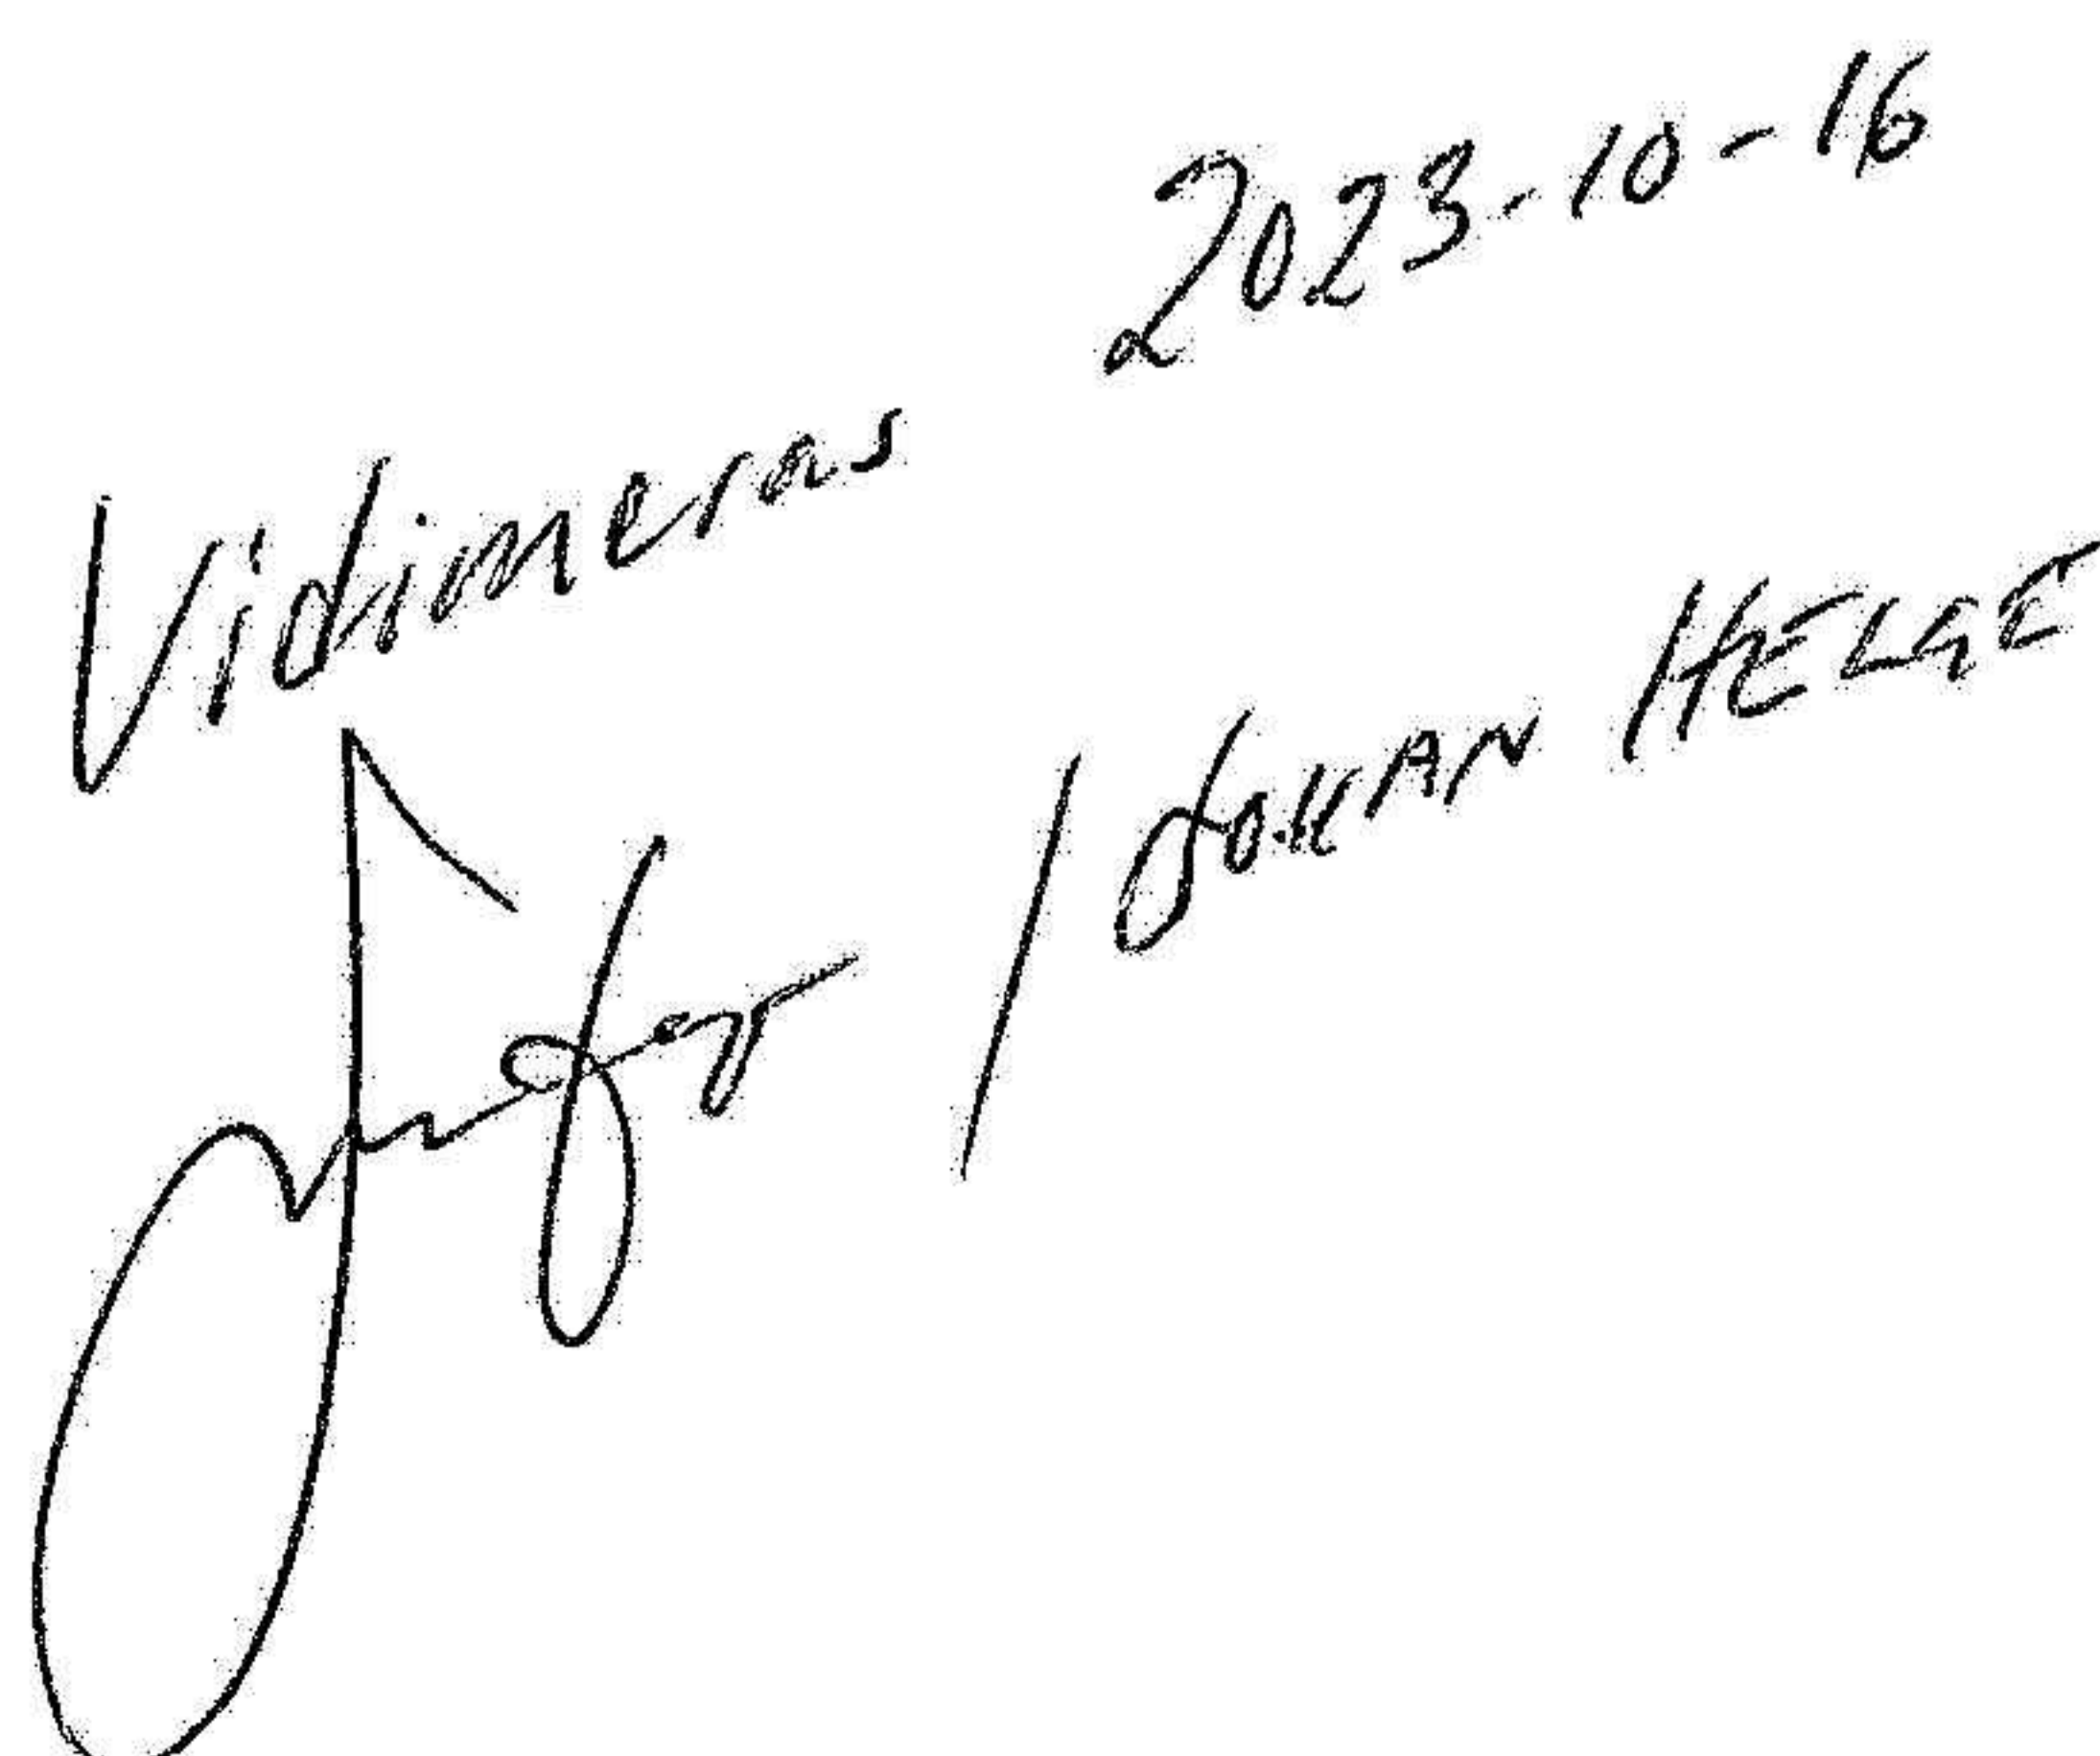 Vidimeras 2023-10-16
/ JOHAN HELGE